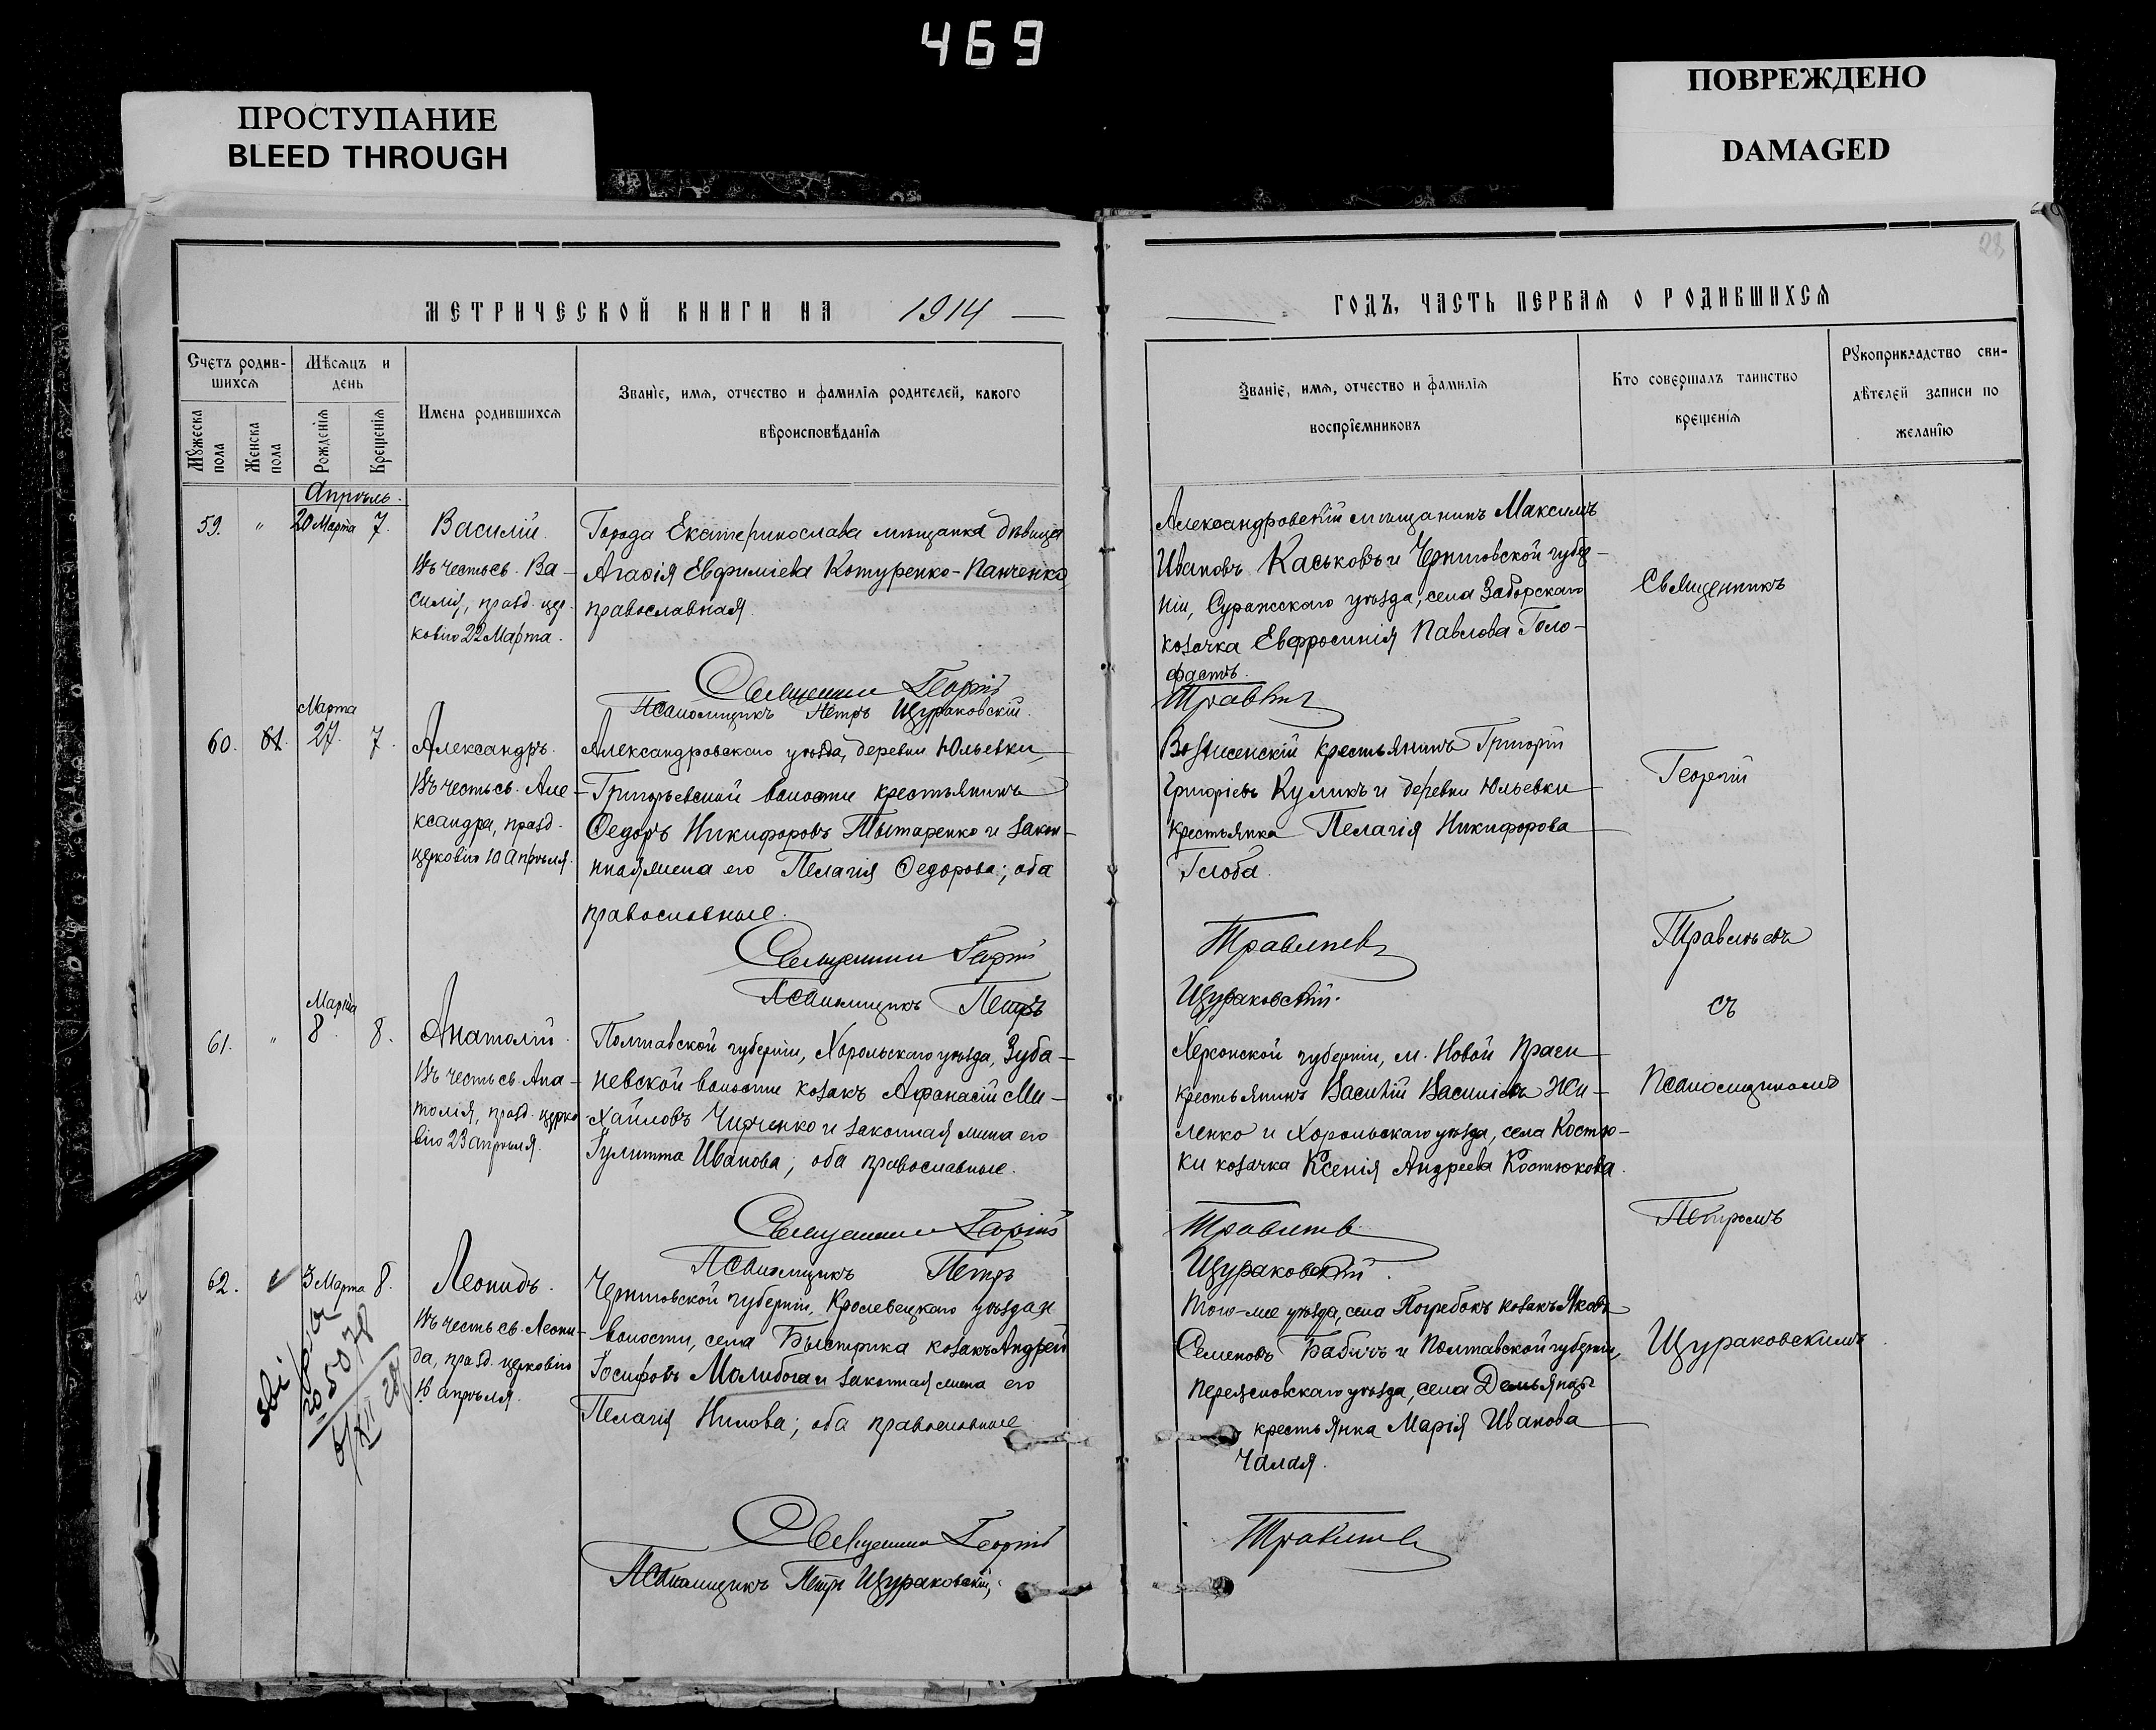 469
ПРОСТУПАНИЕ
BLEED THROUGH
ПОВРЕЖДЕНО
DAMAGED
28
МЕТРИЧЕСКОЙ КНИГИ НА 1914
Счетъ родив-
шихся
Мужеска пола
Женска пола
Мѣсяцъ и
день
Рожденія
Крещенія
Имена родившихся
Званіе, имя, отчество и фамилія родителей, какого
вѣроисповѣданія
Апрѣль.
59. " 20 Марта 7.
Василій.
Въ честь св. Ва-
силія, празд. цер-
ковію 22 Марта.
Города Екатеринослава мѣщанка дѣвица
Агафія Евфиміева Котуренко-Панченко,
православная.
Священникъ Георгій
Псаломщикъ Петръ Щураковскій.
Марта
60. 61. 27. 7.
Александръ.
Въ честь св. Але-
ксандра, празд.
церковію 10 Апрѣля.
Александровскаго уѣзда, деревни Юльевки,
Григорьевской волости крестьянинъ
Ѳедоръ Никифоровъ Тытаренко и закон-
ная жена его Пелагія Ѳедорова; оба
православные.
Священникъ Георгій
Псаломщикъ Петръ
Марта
61. " 8. 8.
Анатолій.
Въ честь св. Ана-
толія, празд. церко-
вію 23 апрѣля.
Полтавской губерніи, Хорольскаго уѣзда, Зуба-
невской волости козакъ Афанасій Ми-
хайловъ Чирченко и законная жена его
Іулитта Иванова; оба православные.
Священникъ Георгій
Псаломщикъ Петръ
62. 3 Марта 8.
Леонидъ.
Въ честь св. Леони-
да, празд. церковію
16 апрѣля.
Черниговской губерніи, Кролевецкаго уѣзда и
волости, села Быстрика козакъ Андрей
Іосифовъ Молибога и законная жена его
Пелагія Нилова; оба православные
5078
Священникъ Георгій
Псаломщикъ Петръ Щураковскій.
ГОДЪ, ЧАСТЬ ПЕРВАЯ О РОДИВШИХСЯ
Званіе, имя, отчество и фамилія
воспріемниковъ
Кто совершалъ таинство
крещенія
Рукоприкладство сви-
дѣтелей записи по
желанію
Александровскій мѣщанинъ Максимъ
Ивановъ Каськовъ и Черниговской губер-
ніи, Суражскаго уѣзда, села Заборскаго
козачка Евфросинія Павлова Голо-
фастъ.
Травлѣев
Вознесенскій крестьянинъ Григорій
Григоріевъ Куликъ и деревни Юльевки
крестьянка Пелагія Никифорова
Глоба.
Травлѣев
Щураковскій.
Херсонской губерніи, м. Новой Праги
крестьянинъ Василій Василіевъ Жи-
ленко и Хорольскаго уѣзда, села Костю-
ки козачка Ксенія Андреева Костюкова.
Травлѣев
Щураковскій.
Того-же уѣзда, села Погребокъ козакъ Яковъ
Семеновъ Бабичъ и Полтавской губерніи,
Переяславскаго уѣзда, села
крестьянка Марія Иванова
Чалая.
Травлѣев
Священникъ
Георгій
Травлѣевъ
съ
Псаломщикомъ
Петромъ
Щураковскимъ.